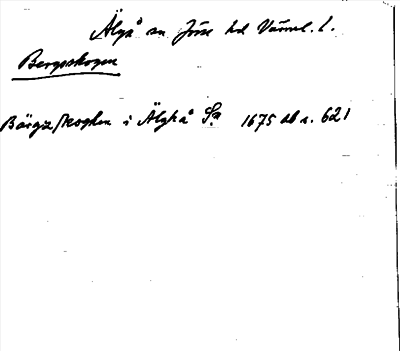 Älgå sn Jösse hd Värml. l.
Bergsskogen
Bärgz/skoghen i Älghå Sn 1675 db s. 621